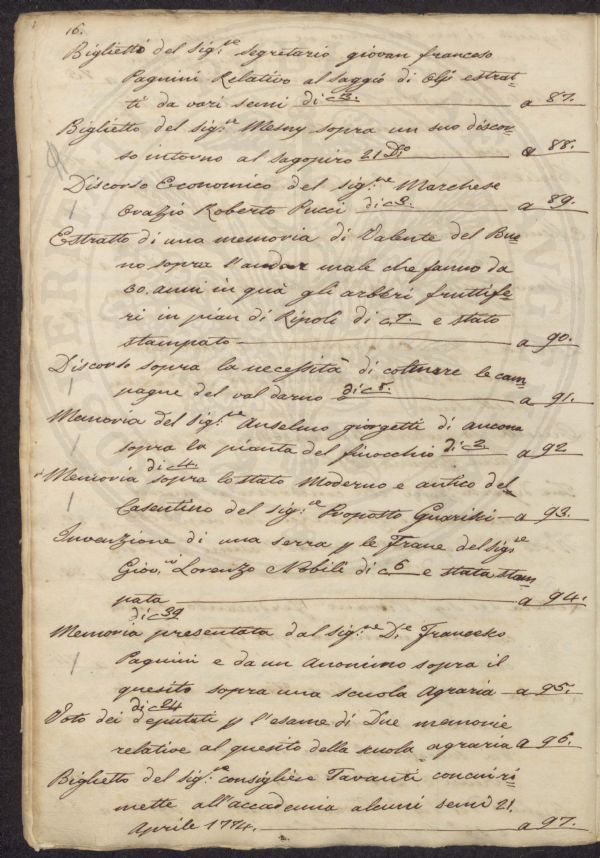 16.
Biglietti del sig:re segretario giovan franceso
Pagnini Relativo al saggio di Olj estrat-
ti da vari semi di c. 3. a 87.
Biglietto del sig:re Mesny sopra un suo discor-
so intorno al sagopiro 21 D:o a 88.
Discorso Economico del sig:re Marchese
Orazio Roberto Pucci di c 3. a 89.
Estratto di una memoria di Valente del Buo-
no sopra l'andar male che fanno da
60. anni in quà gli arberi fruttife-
ri in pian di Ripoli di c. 7. e stato
stampato a 90.
Discorso sopra la necessità di coltivare le cam-
pagne del val darno di c 8. a 91.
Memoria del sig:re Anselmo giorgetti di ancona
sopra la pianta del finocchio di c. 2. a 92
di c 4.
Memoria sopra lo stato Moderno e antico del
Casentino del sig:re Proposto a 93.
Invenzione di una serra p le Frane del sig:re
Giov:ni Lorenzo Nobili di c 6 e stata stam-
pata a 94.
di c 39
Memoria presentata dal sig:re D:e Francesco
Pagnini e da un anonimo sopra il
quesito sopra una scuola Agraria a 95.
di c 24
Voto dei deputati p l'esame di Due memorie
relative al quesito della scuola agraria a 96.
Biglietto del sig:re consigliere Tavanti con cui ri-
mette all'accademia alcuni semi 21.
Aprile 1774. a 97.